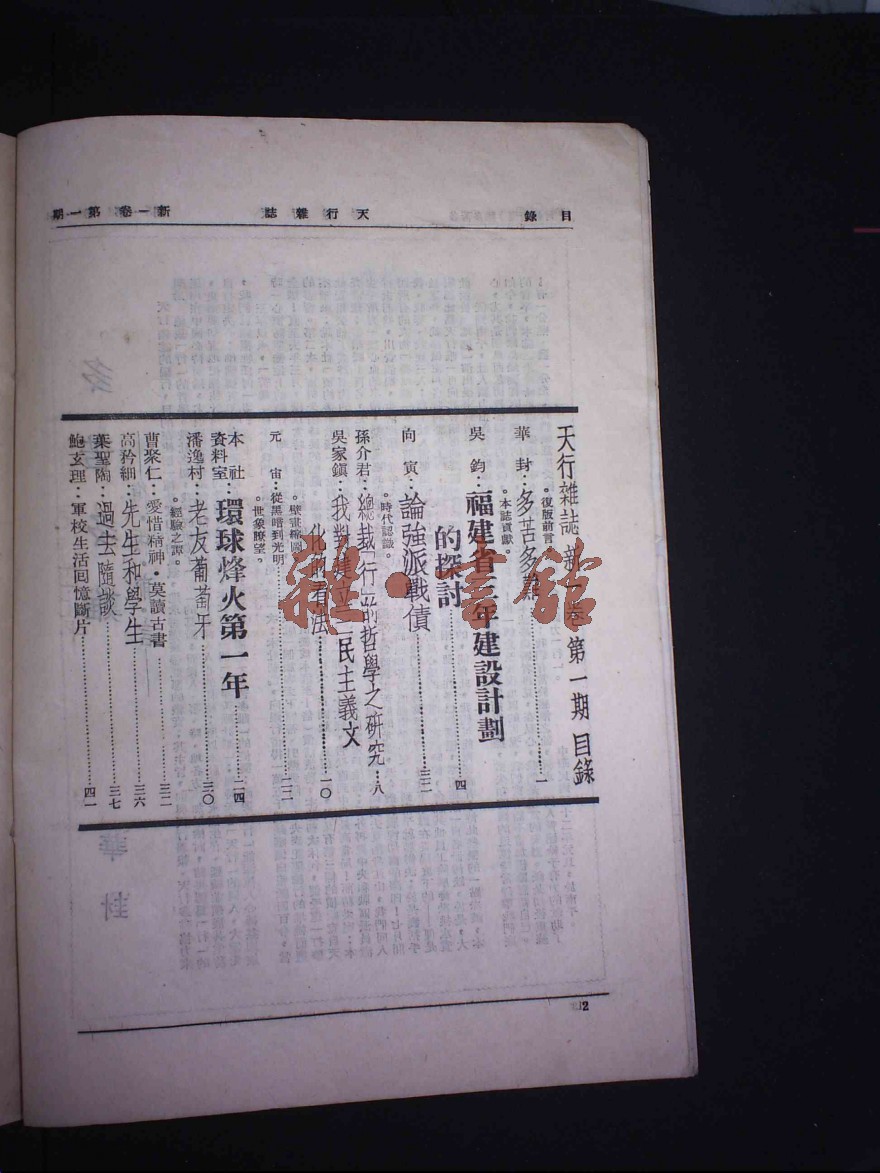 目錄 天行雜誌 新一卷第一期
天行雜誌新一卷第一期目錄
。復版前言。
華封：多苦多難……一
。本誌貢獻。
吳鈞：福建省三年建設計劃
的探討……四
向寅：論強派戰債……三二
。時代認識。
孫介君：總裁「行」的哲學之研究…八
吳家鎮：我對建立三民主義文
化的看法……一〇
。壁畫縮圖。
元宙：從黑暗到光明……二二
。世象瞭望。
本社資料室：環球烽火第一年……二四
潘逸村：老友葡萄牙……三〇
。經驗之譚。
曹聚仁：愛惜精神・莫讀古書……三二
高矜細：先生和學生……三六
葉聖陶：過去隨談……三七
鮑玄理：軍校生活回憶斷片……四一
2
雜・書館